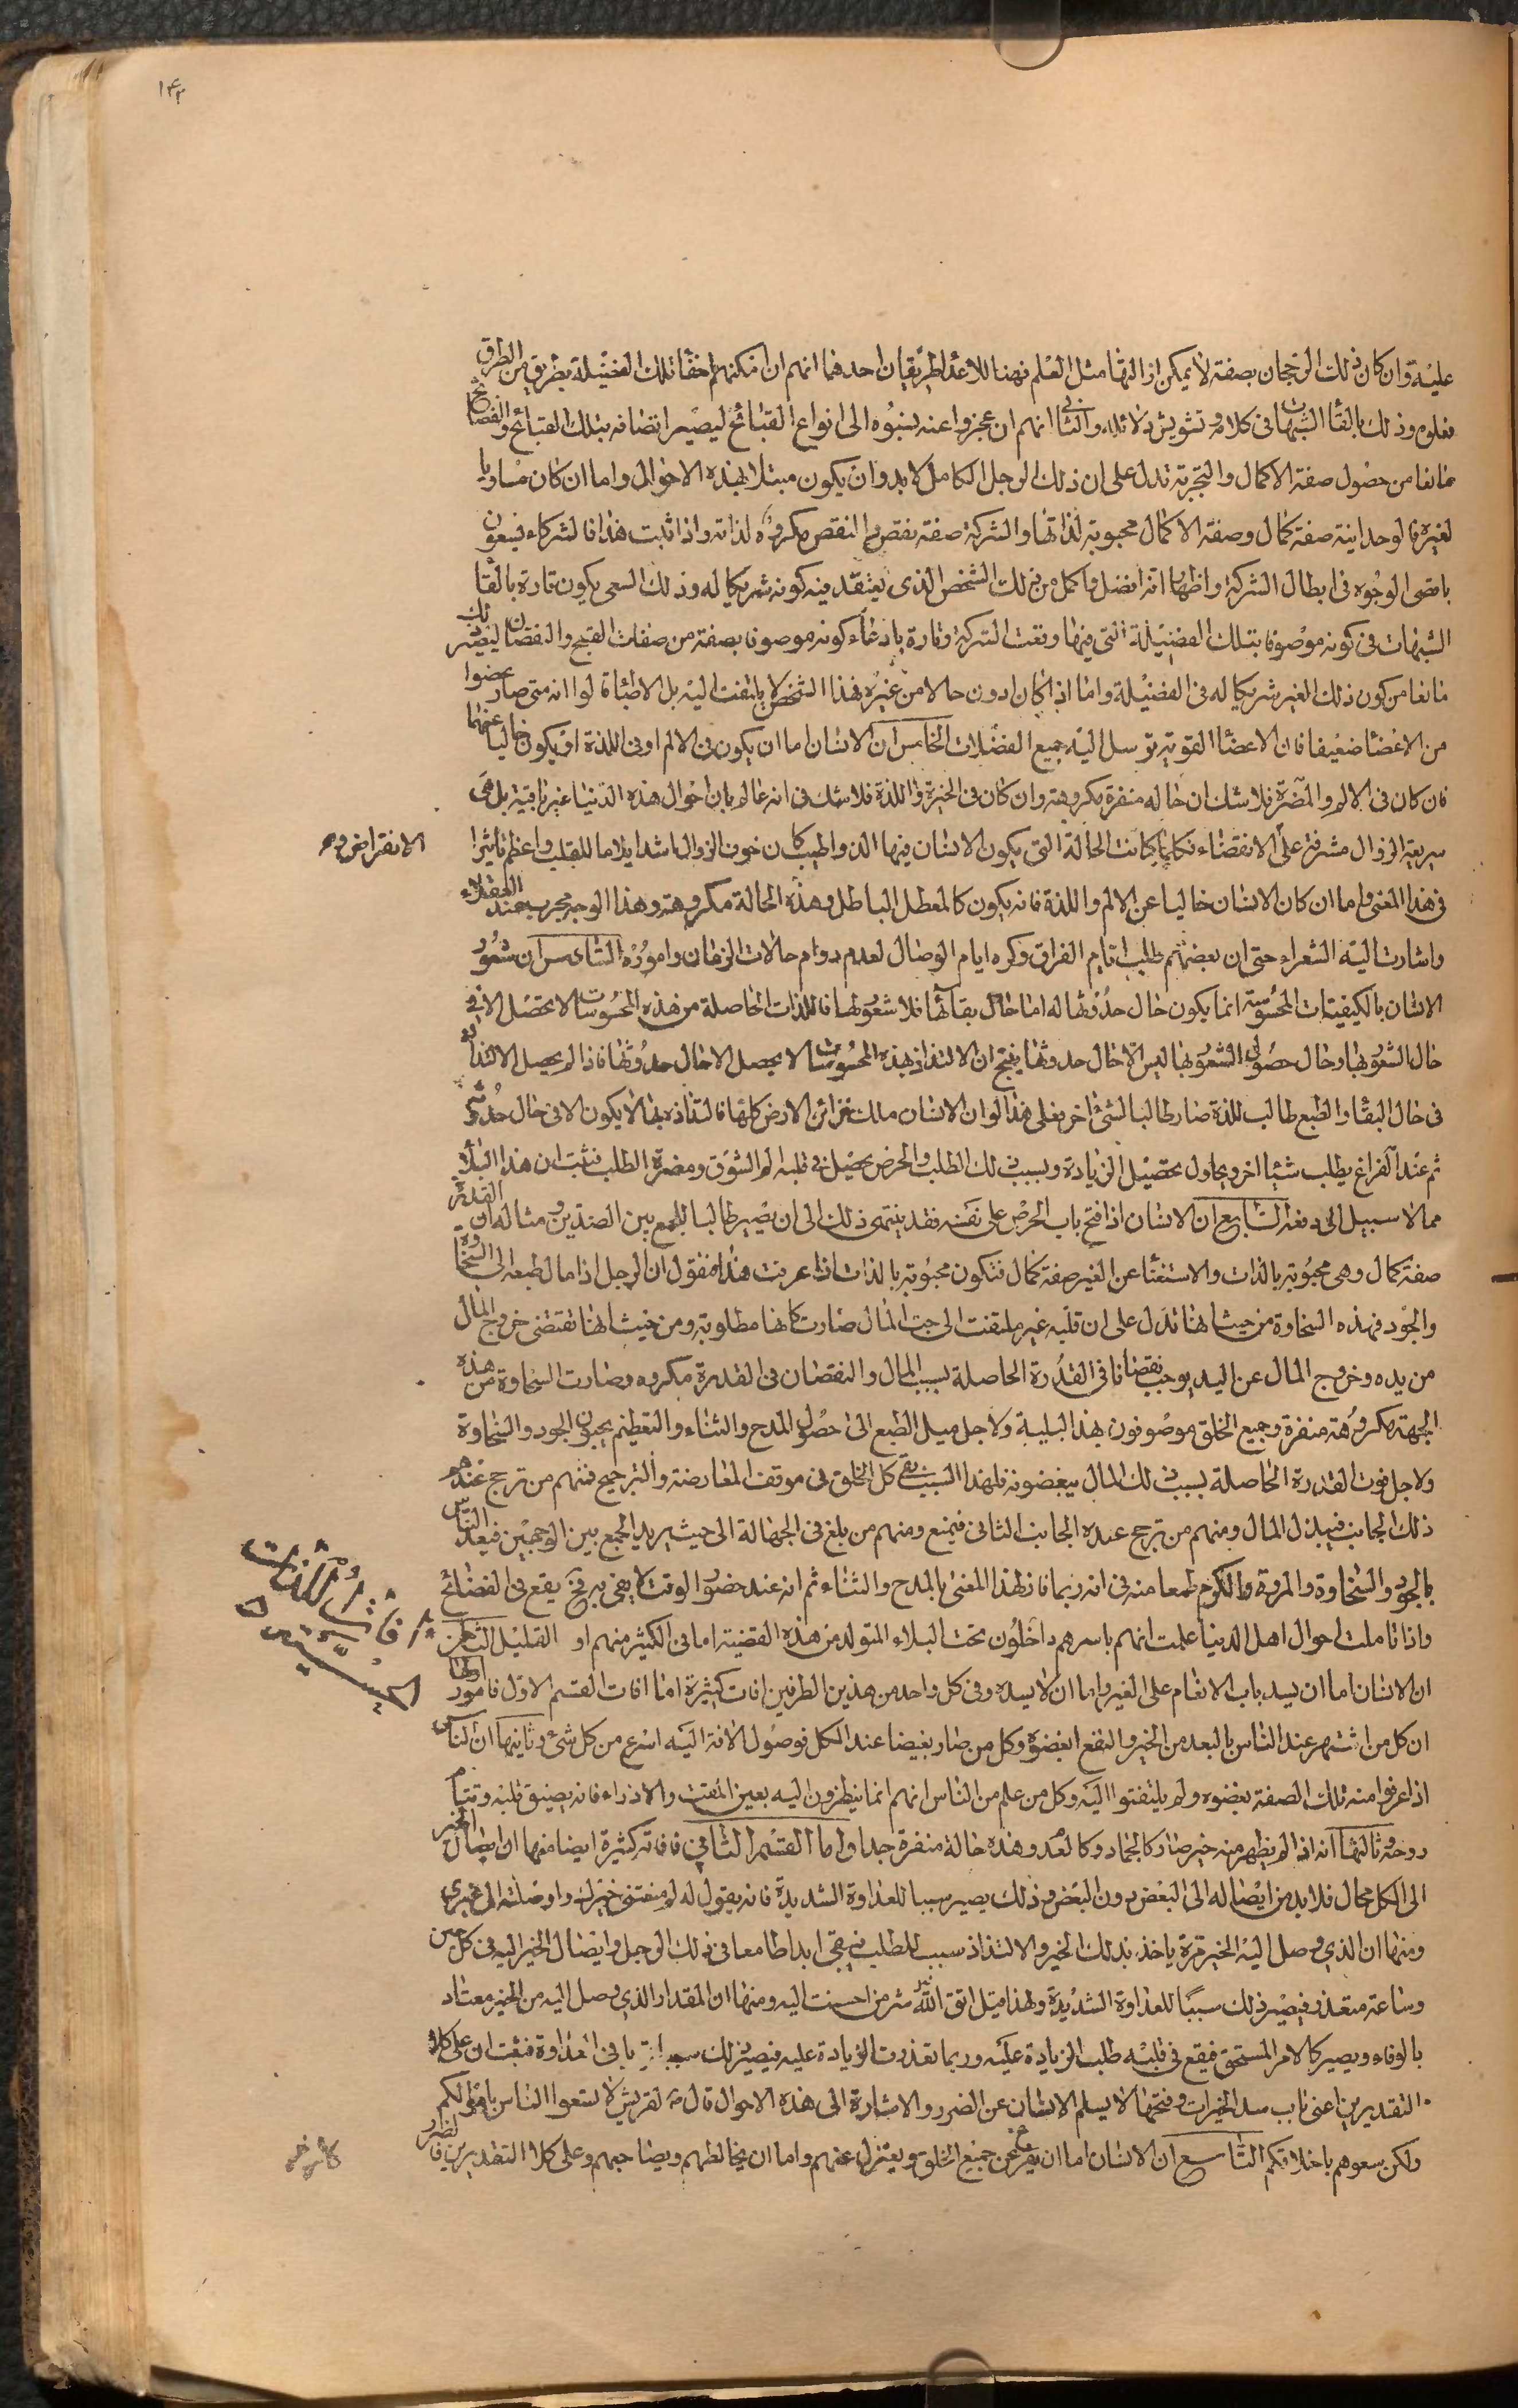 ١٤٢
عليه وان كان ذلك الرجحان بصفة لا يمكن ازالتها مثل العلم فهنا للاعداء طريقان احدهما انهم ان امكنهم اخفاء تلك الفضيلة بطريق من الطرق
فعلوه وذلك بالقاء الشبهات فى كلامه وتشويش دلائله والثانى انهم ان عجزوا عنه نسبوه الى انواع القبائح ليصير اتصافه بتلك القبائح والفضائح
مانعا من حصول صفة الاكمال والتجربة تدل على ان ذلك الرجل الكامل لا بد وان يكون مبتلا بهذه الاحوال واما ان كان مساويا
لغيره فالوحدانية صفة كمال وصفة الاكمال محبوبة لذاتها والشركة صفة نقص والنقص مكروه لذاته واذا ثبت هذا فالشركاء يسعون
باقصى الوجوه فى ابطال الشركة واظهار انه افضل واكمل من ذلك الشخص الذى يعتقد فيه كونه شريكا له وذلك السعى يكون تارة بالقاء
الشبهات فى كونه موصوفا بتلك الفضيلة التى فيها وقعت الشركة وتارة بادعاء كونه موصوفا بصفة من صفات القبح والنقصان ليصير ذلك
مانعا من كون ذلك الغير شريكا له فى الفضيلة واما اذا كان ادون حالا من غيره فهذا الشخص لا يلتفت اليه بل الاطباء قالوا انه متى صار عضوا
من الاعضاء ضعيفا فان الاعضاء القوية ترسل اليه جميع الفضلات الخامس ان الانسان اما ان يكون فى الالم او فى اللذة او يكون خاليا عنهما
فان كان فى الالم والمضرة فلا شك ان حاله منفرة مكروهة وان كان فى الخيرة واللذة فلا شك فى انه عالم بان احوال هذه الدنيا غير باقية بل هى
سريعة الزوال مشرفة على الانقضاء فكلما كانت الحالة التى يكون الانسان فيها الذ واطيب كان خوف الزوال اشد ايلاما للقلب واعظم تأثيرا
فى هذا المعنى واما ان كان الانسان خاليا عن الالم واللذة فانه يكون كالمعطل الباطل وهذه الحالة مكروهة وهذا الوجه مجرب عند العقلاء
واشارت اليه الشعراء حتى ان بعضهم طلب ايام الفراق وكره ايام الوصال لعدم دوام حالات الزمان واموره السادس ان شعور
الانسان بالكيفيات المحسوسة انما يكون حال حدوثها له اما حال بقائها فلا شعور لها فاللذات الحاصلة من هذه المحسوسات لا تحصل الا فى
حال الشعور بها وحال حصول الشعور بها ليس الا حال حدوثها ينتج ان الالتذاذ بهذه المحسوسات لا يحصل الا حال حدوثها فاذا لم يحصل الالتذاذ
فى حال البقاء والطبع طالب للذة صار طالبا لشئ اخر فعلى هذا لو ان الانسان ملك خزائن الارض كلها فالتذاذه بها لا يكون الا فى حال حدوثه
ثم عند الفراغ يطلب شيئا اخر ويحاول تحصيل الزيادة وبسبب ذلك الطلب والحرص يحصل فى قلبه الم الشوق ومضرة الطلب فثبت ان هذا البلاء
مما لا سبيل الى دفعه السابع ان الانسان اذا فتح باب الحرص على نفسه فقد ينتهى ذلك الى ان يصير طالبا للجمع بين الضدين ومثاله ان القدرة
صفة كمال وهى محبوبة بالذات والاستغناء عن الغير صفة كمال فتكون محبوبة بالذات اذا عرفت هذا فنقول ان الرجل اذا مال طبعه الى السخاوة
والجود فهذه السخاوة من حيث انها تدل على ان قلبه غير ملتفت الى حب المال صارت كانها مطلوبة ومن حيث انها تقتضى خروج المال
من يده وخروج المال عن اليد يوجب نقصانا فى القدرة الحاصلة بسبب المال والنقصان فى القدرة مكروه فصارت السخاوة من هذه
الجهة مكروهة منفرة وجميع الخلق موصوفون بهذا البلية ولاجل ميل الطبع الى حصول المدح والثناء والتعظيم يحبون الجود والسخاوة
ولاجل فوت القدرة الحاصلة بسبب ذلك المال يبغضونه فلهذا السبب بقى كل الخلق فى موقف المعارضة والترجيح فمنهم من ترجح عنده
ذلك الجانب فيبذل المال ومنهم من ترجح عنده الجانب الثانى فيمنع ومنهم من بلغ فى الجهالة الى حيث يريد الجمع بين الوجهين فيعد الناس
بالجود والسخاوة والمروة والكرم طمعا منه فى انه ربما فاز لهذا المعنى بالمدح والثناء ثم انه عند حضور الوقت لا يفى به فح يقع فى الفضائح
واذا تاملت احوال اهل الدنيا علمت انهم باسرهم داخلون تحت البلاء المتولد من هذه القضية اما فى الكثير منهم او القليل الثامن
ان الانسان اما ان يسد باب الانعام على الغير واما ان لا يسده وفى كل واحد من هذين الطرفين افات كثيرة اما افات القسم الاول فامور اولها
ان كل من اشتهر عند الناس بالبعد من الخير والنفع ابغضوه وكل من صار بغيضا عند الكل فوصول الافة اليه اسرع من كل شئ وثانيها ان الناس
اذا عرفوا منه تلك الصفة بغضوه ولم يلتفتوا اليه وكل من علم من الناس انهم انما ينظرون اليه بعين المقت والازراء فانه يضيق قلبه
روحه وثالثها انه اذا لم يظهر منه خير صار كالجماد وكالعدم وهذه حالة منفرة جدا واما القسم الثانى فافاته كثيرة ايضا منها ان ايصال الخير
الى الكل محال فلا بد من ايصاله الى البعض دون البعض وذلك يصير سببا للعداوة الشديدة فانه يقول له لم منعتنى خيرك واوصلته الى غيرى
ومنها ان الذى وصل اليه الخير مرة ياخذ بذلك الخير والالتذاذ سبب للطلب فيبقى ابدا طامعا فى ذلك الرجل وايصال الخير اليه فى كل حين
وساعة متعذر فيصير ذلك سببا للعداوة الشديدة ولهذا قيل اتق الله شر من احسنت اليه ومنها ان المقدار الذى وصل اليه من الخير معتاد
بالوفاء ويصير كالامر المستحق فيقع فى قلبه طلب الزيادة عليه وربما تعذرت الزيادة عليه فيصير ذلك سببا فى العداوة فثبت ان على كلا
التقديرين اعنى باب سد الخيرات وفتحها لا يسلم الانسان عن الضرر والاشارة الى هذه الاحوال قال لقريش لا تسعوا الناس باموالكم
ولكن سعوهم باخلاقكم التاسع ان الانسان اما ان يفر عن جميع الخلق ويعتزل عنهم واما ان يخالطهم ويصاحبهم وعلى كلا التقديرين فالضرر